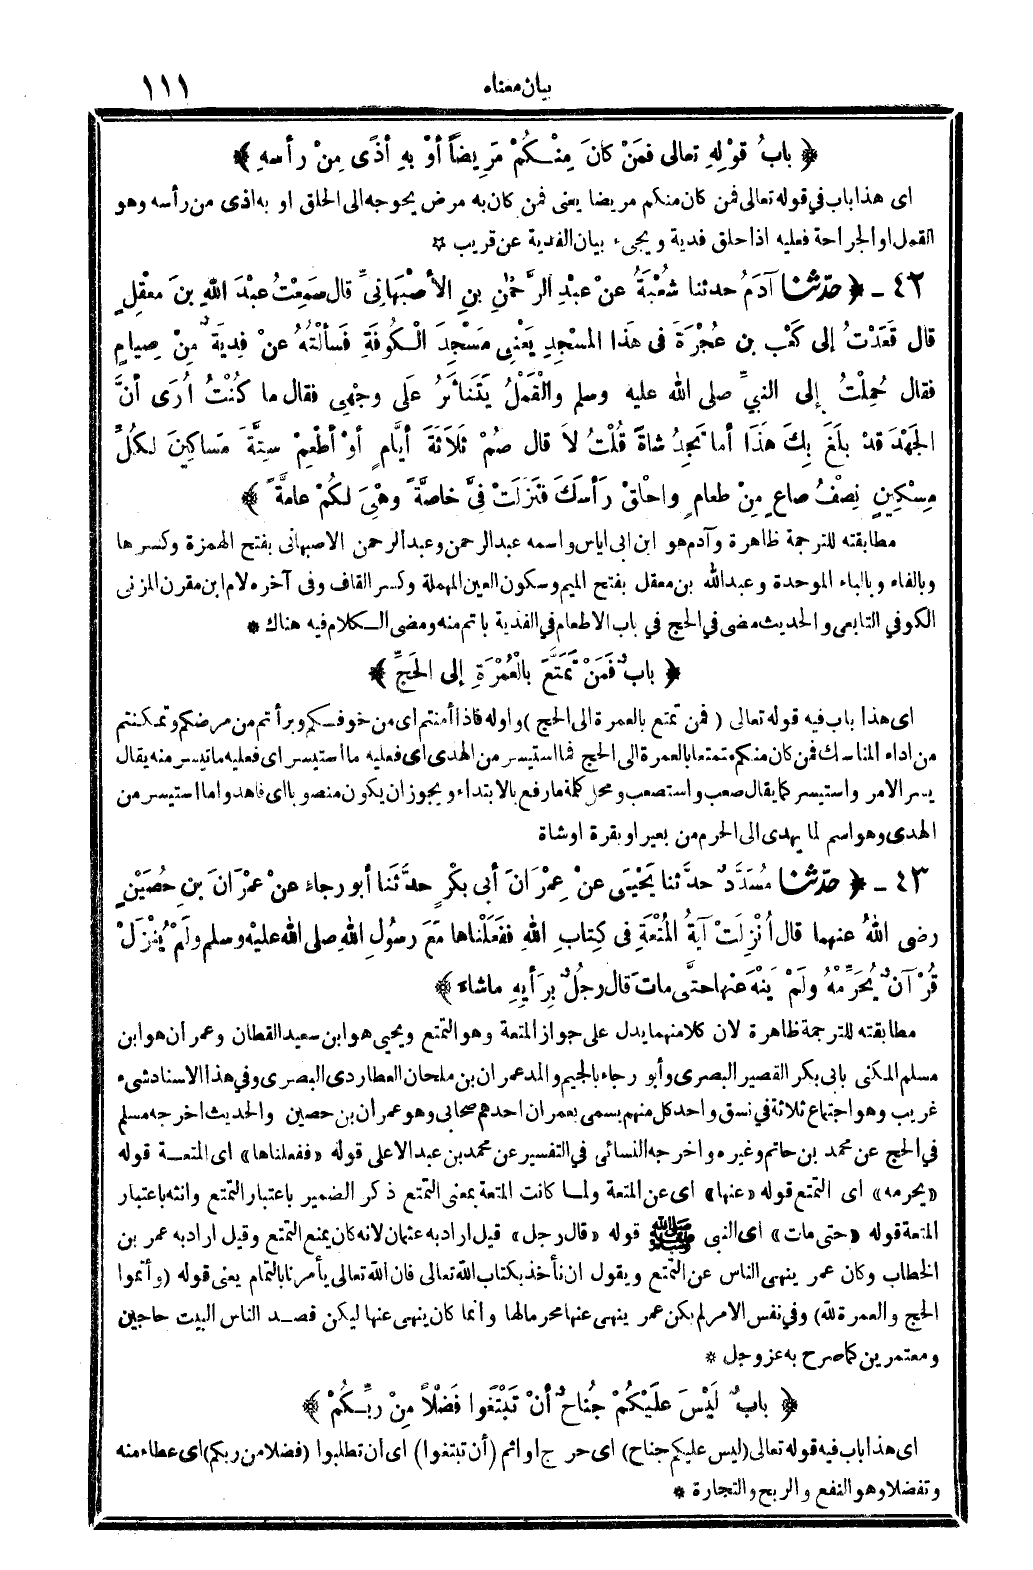 بيان معناه ١١١
﴿ بابُ قوْلِهِ تعالى فمَنْ كانَ مِنْكُمْ مَرِيضاً أوْ بِهِ أذًى مِنْ رأسهِ ﴾
اى هذا باب فى قوله تعالى فمن كان منكم مريضا يعنى فمن كان به مرض يحوجه الى الحلق او به اذى من رأسه وهو
القمل او الجراحة فعليه اذا حلق فدية ويجىء بيان الفدية عن قريب ✡
٤٢ - ﴿ حدّثنا آدَمُ حدثنا شُعْبَةُ عنْ عبْدِ الرَّحْمٰنِ بنِ الأصْبَهانِيِّ قال سَمِعْتُ عبْدَ اللهِ بنَ معْقِلٍ
قال قَعَدْتُ إلى كَعْبِ بنِ عُجْرَةَ فى هَذا المسْجِدِ يَعْنِى مَسْجِدَ الْكُوفَةِ فَسألْتُهُ عنْ فِدْيَةٌ مِنْ صِيامٍ
فقال حُمِلْتُ إلى النبيِّ صلى الله عليه وسلم والْقَمْلُ يَتَناثَرُ عَلَى وجْهِى فقال ما كُنْتُ اُرَى أنَّ
الجَهْدَ قدْ بلَغَ بِكَ هَذَا أما تَجِدُ شاةً قُلْتُ لاَ قال صُمْ ثَلاَثَةَ أيَّامٍ أوْ أطْعِمْ سِتَّةَ مَساكِينَ لِكُلِّ
مِسْكِينٍ نِصْفُ صاعٍ مِنْ طعامٍ واحْلِقْ رَأسَكَ فنَزَلَتْ فِىَّ خاصَّةً وهْىَ لَكُمْ عامَّةً ﴾
مطابقته للترجمة ظاهرة وآدم هو ابن ابى اياس واسمه عبدالرحمن وعبدالرحمن الاصبهانى بفتح الهمزة وكسرها
وبالفاء وبالباء الموحدة وعبدالله بن معقل بفتح الميم وسكون العين المهملة وكسر القاف وفى آخره لام ابن مقرن المزنى
الكوفي التابعى والحديث مضى في الحج في باب الاطعام في الفدية باتم منه ومضى الكلام فيه هناك *
﴿ بابٌ فمَنْ تَمَتَّعَ بالْعُمْرَةِ إلى الحَجِّ ﴾
اى هذا باب فيه قوله تعالى ( فمن تمتع بالعمرة الى الحج ) واوله فاذا أمنتم اى من خوفكم وبرأتم من مرضكم وتمكنتم
من اداء المناسك فمن كان منكم متمتعا بالعمرة الى الحج فما استيسر من الهدى اى فعليه ما استيسر اى فعليه ما تيسر منه يقال
يسر الامر واستيسر كما يقال صعب واستصعب ومحل كلمة ما رفع بالابتداء ويجوز ان يكون منصوبا اى فاهدوا ما استيسر من
الهدى وهو اسم لما يهدى الى الحرم من بعير او بقرة او شاة
٤٣ - ﴿ حدّثنا مُسَدَّدٌ حدَّثنا يَحْيَى عنْ عِمْرَانَ أبى بكْرٍ حدَّثنَا أبو رجاءٍ عنْ عِمْرَانَ بنِ حُصَيْنٍ
رضى اللهُ عنهما قال أُنْزِلَتْ آيَةُ المُتْعَةِ فى كِتابِ اللهِ ففَعَلْناها مَعَ رسولِ اللهِ صلى الله عليْهِ وسلم ولَمْ يُنْزَلْ
قُرْآنٌ يُحَرِّمُهُ ولَمْ يَنْهَ عَنها حتَّى ماتَ قال رجُلٌ بِرَأيِهِ ماشاءَ ﴾
مطابقته للترجمة ظاهرة لان كلا منهما يدل على جواز المتعة وهو التمتع ويحيى هو ابن سعيد القطان وعمران هو ابن
مسلم المكنى بابى بكر القصير البصرى وأبو رجاء بالجيم والمد عمران بن ملحان العطاردى البصرى وفي هذا الاسناد شىء
غريب وهو اجتماع ثلاثة في نسق واحد كل منهم يسمى بعمران احدهم صحابى وهو عمران بن حصين والحديث اخرجه مسلم
في الحج عن محمد بن حاتم وغيره واخرجه النسائى في التفسير عن محمد بن عبد الاعلى قوله «ففعلناها» اى المتعة قوله
«يحرمه» اى التمتع قوله «عنها» اى عن المتعة ولما كانت المتعة بمعنى التمتع ذكر الضمير باعتبار التمتع وانثه باعتبار
المتعة قوله «حتى مات» اى النبى ﷺ قوله «قال رجل» قيل اراد به عثمان لانه كان يمنع التمتع وقيل اراد به عمر بن
الخطاب وكان عمر ينهى الناس عن التمتع ويقول ان نأخذ بكتاب الله تعالى فان الله تعالى يأمرنا بالتمام يعنى قوله (وأتموا
الحج والعمرة لله) وفي نفس الامر لم يكن عمر ينهى عنها محرما لها وانما كان ينهى عنها ليكن قصد الناس البيت حاجين
ومعتمرين كما صرح به عز وجل *
﴿ بابٌ لَيْسَ علَيْكُمْ جُناحٌ أنْ تَبْتَغُوا فَضْلاً مِنْ ربِّكُمْ ﴾
اى هذا باب فيه قوله تعالى (ليس عليكم جناح) اى حرج او اثم (أن تبتغوا) اى ان تطلبوا (فضلا من ربكم) اى عطاء منه
وتفضلا وهو النفع والربح والتجارة *